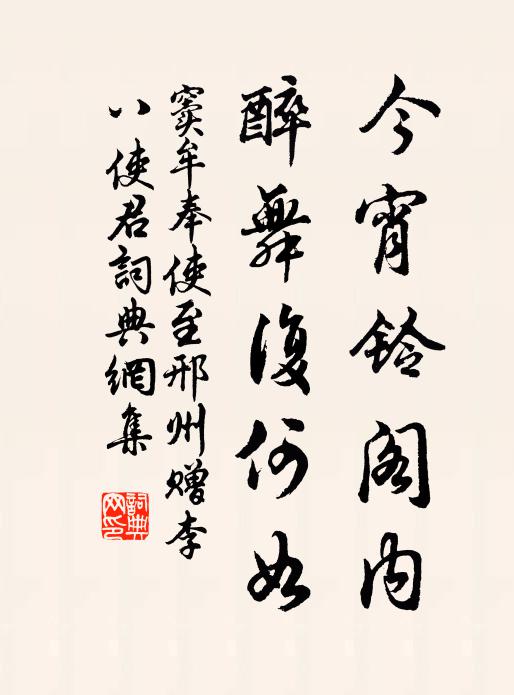 今宵鈴阁内
醉舞復何如
竇牟奉使至邢州赠李
八使君詞典網集
詞典網印